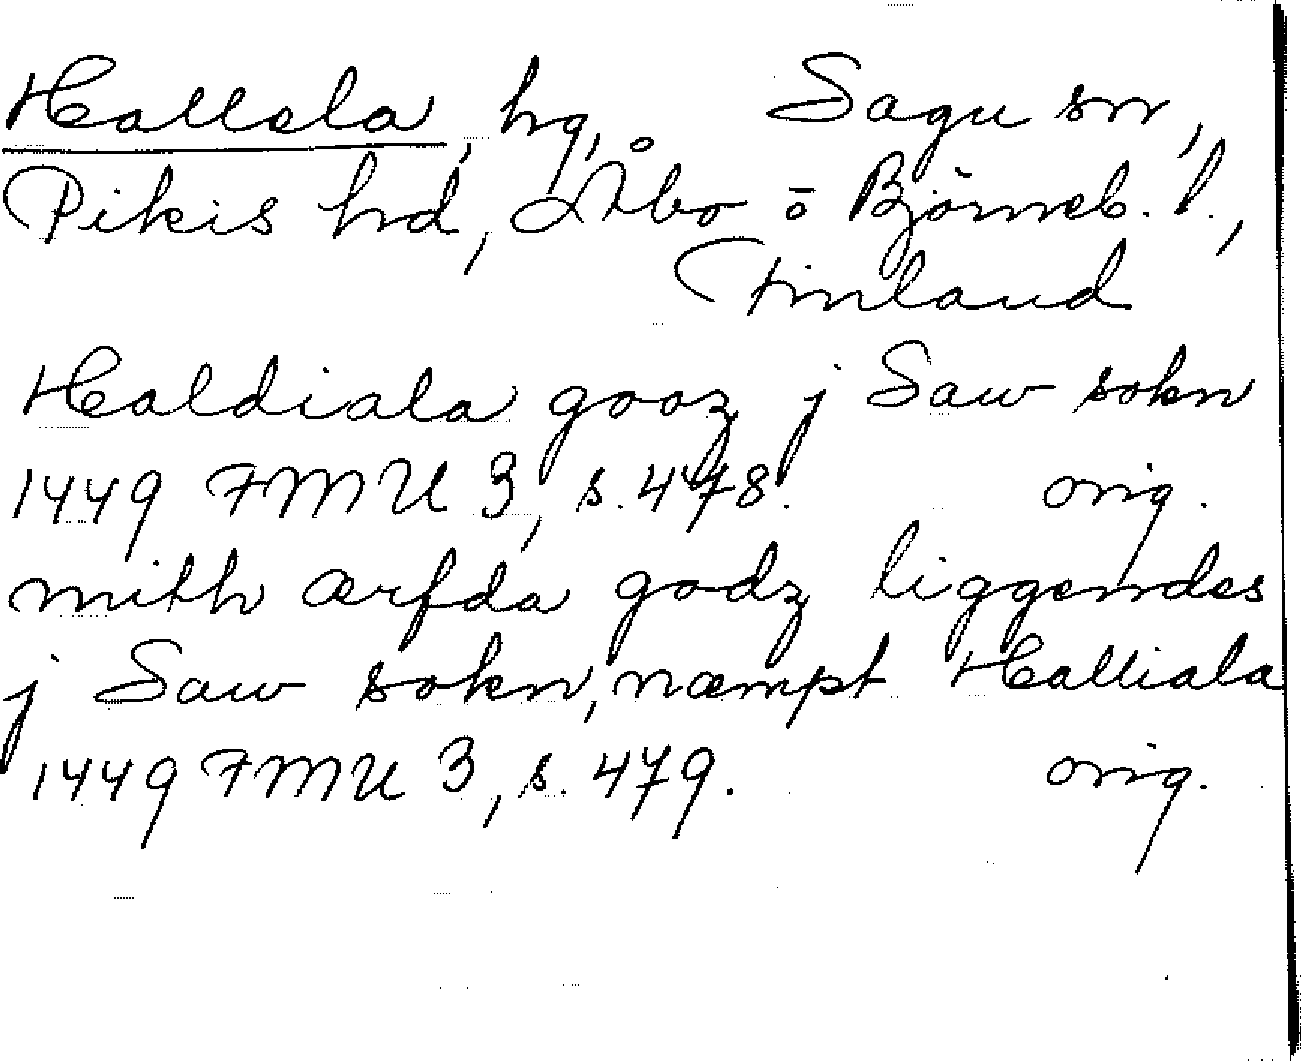 Hallela, hg, Sagu sn,
Pikis hd, Åbo o Björneb. l.,
Finland
Haldiala gooz j Saw sokn
1449 FMU 3, s. 478. orig.
mith ærfda godz liggendes
j Saw sokn, næmpt Halliala
1449 FMU 3, s. 479. orig.